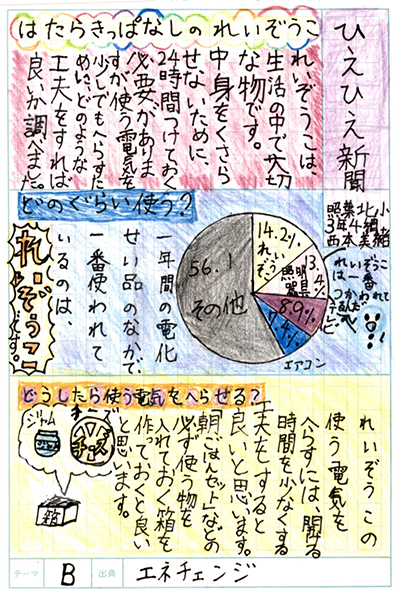 ひえひえ新聞
照葉北小
3年4組
西本美緒
はたらきっぱなしのれいぞうこ
れいぞうこは、
生活の中で大切
な物です。
中身をくさら
せないために、
24時間つけておく
必要がありま
すが、使う電気を
少しでもへらすた
めに、どのような
工夫をすれば
良いか調べました。
どのぐらい使う?
14.2%
れいぞうこ
13.4%
照明器具
8.9%
テレビ
7.4%
エアコン
56.1
その他
一年間の電化
せい品のなかで
一番使われて
いるのは、
れいぞうこ
です。
どうしたら使う電気をへらせる?
れいぞうこの
使う電気を
へらすには、開ける
時間を少なくする
工夫をすると
良いと思います。
「朝ごはんセット」などの
必ず使う物を
入れておく箱を
作っておくと良い
と思います。
ジャム
チーズ
チーズ
箱
テーマ B 出典 エネチェンジ